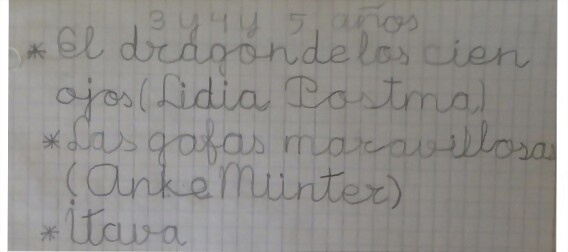 3 y 4 y 5 años
* El dragon de los cien
ojos (Lidia Postma)
* Las gafas maravillosas
(Anke Münter)
* Itava